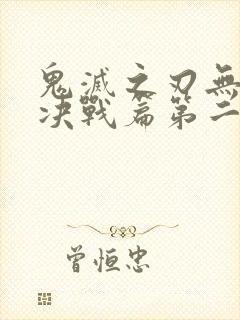 鬼滅之刃無
決戰篇第二
曾恒忠